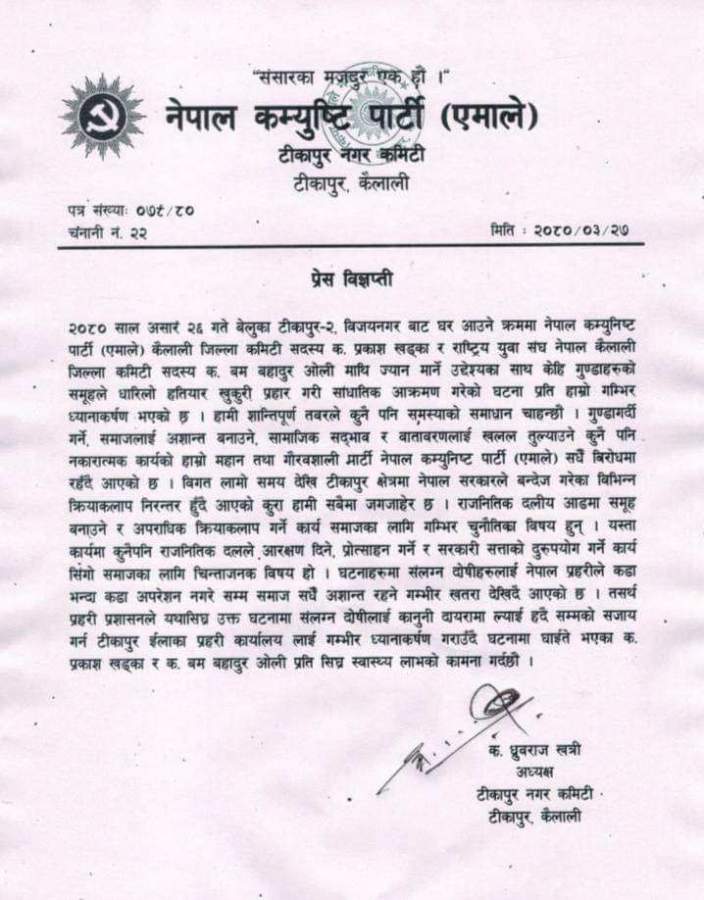 "संसारका मजदुर एक हौ ।"
नेपाल कम्युष्टि पार्टी (एमाले)
टीकापुर नगर कमिटी
टीकापुर, कैलाली
पत्र संख्याः ०७९/८०
चंनानी नं. २२
मिति : २०८०/०३/२७
प्रेस विज्ञप्ती
२०८० साल असार २६ गते बेलुका टीकापुर-२, विजयनगर बाट घर आउने क्रममा नेपाल कम्युनिष्ट
पार्टी (एमाले) कैलाली जिल्ला कमिटी सदस्य क. प्रकाश खड्का र राष्ट्रिय युवा संघ नेपाल कैलाली
जिल्ला कमिटी सदस्य क. बम बहादुर ओली माथि ज्यान मार्ने उद्देश्यका साथ केहि गुण्डाहरुको
समूहले धारिलो हतियार खुकुरी प्रहार गरी सांधातिक आक्रमण गरेको घटना प्रति हाम्रो गम्भिर
ध्यानाकर्षण भएको छ । हामी शान्तिपूर्ण तबरले कुनै पनि समस्याको समाधान चाहन्छौ । गुण्डागर्दी
गर्ने, समाजलाई अशान्त बनाउने, सामाजिक सद्भाव र वातावरणलाई खलल तुल्याउने कुनै पनि
नकारात्मक कार्यको हाम्रो महान तथा गौरवशाली पार्टी नेपाल कम्युनिष्ट पार्टी (एमाले) सधैँ बिरोधमा
रहँदै आएको छ । विगत लामो समय देखि टीकापुर क्षेत्रमा नेपाल सरकारले बन्देज गरेका विभिन्न
क्रियाकलाप निरन्तर हुँदै आएको कुरा हामी सबैमा जगजाहेर छ । राजनितिक दलीय आडमा समूह
बनाउने र अपराधिक क्रियाकलाप गर्ने कार्य समाजका लागि गम्भिर चुनौतिका विषय हुन् । यस्ता
कार्यमा कुनैपनि राजनितिक दलले आरक्षण दिने, प्रोत्साहन गर्ने र सरकारी सत्ताको दुरुपयोग गर्ने कार्य
सिंगो समाजका लागि चिन्ताजनक विषय हो । घटनाहरुमा संलग्न दोषीहरुलाई नेपाल प्रहरीले कडा
भन्दा कडा अपरेशन नगरे सम्म समाज सधैँ अशान्त रहने गम्भीर खतरा देखिदै आएको छ । तसर्थ
प्रहरी प्रशासनले यथासिघ्र उक्त घटनामा संलग्न दोषीलाई कानुनी दायरामा ल्याई हदै सम्मको सजाय
गर्न टीकापुर ईलाका प्रहरी कार्यालय लाई गम्भीर ध्यानाकर्षण गराउँदै घटनामा घाईते भएका क.
प्रकाश खड्का र क. बम बहादुर ओली प्रति सिघ्र स्वास्थ्य लाभको कामना गर्दछौ ।
क. ध्रुवराज खत्री
अध्यक्ष
टीकापुर नगर कमिटी
टीकापुर, कैलाली